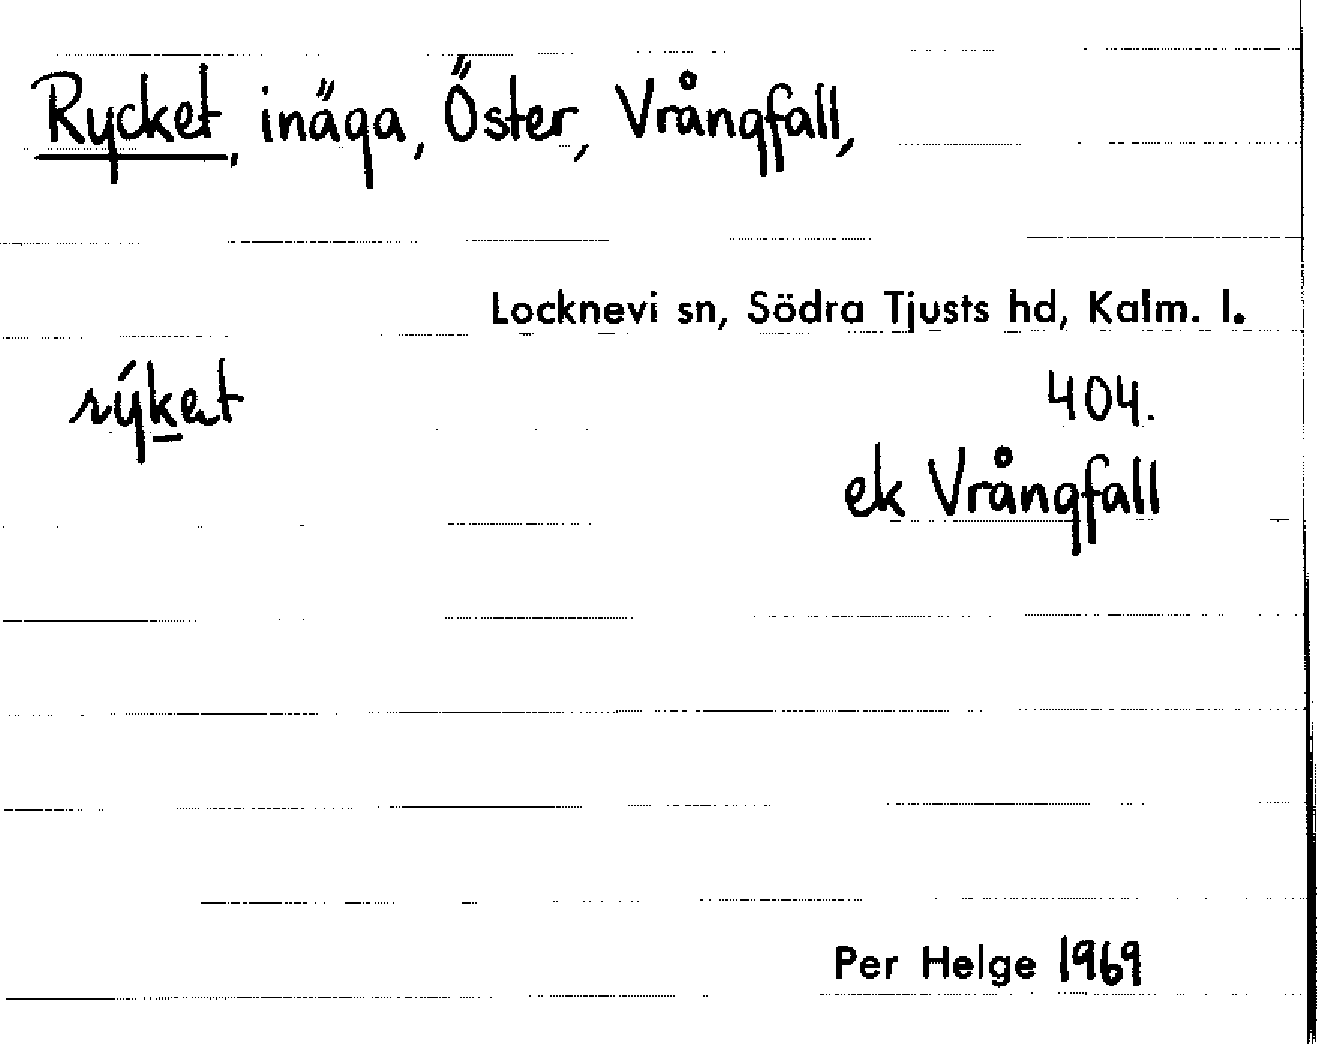 Rycket, inäga, Öster, Vrångfall,
Locknevi sn, Södra Tjusts hd, Kalm. l.
rýket
404.
ek Vrångfall
Per Helge 1969